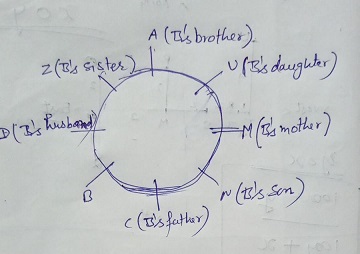 A (B's brother)
Z (B's sister)
U (B's daughter)
D (B's husband)
M (B's mother)
B
N (B's son)
C (B's father)